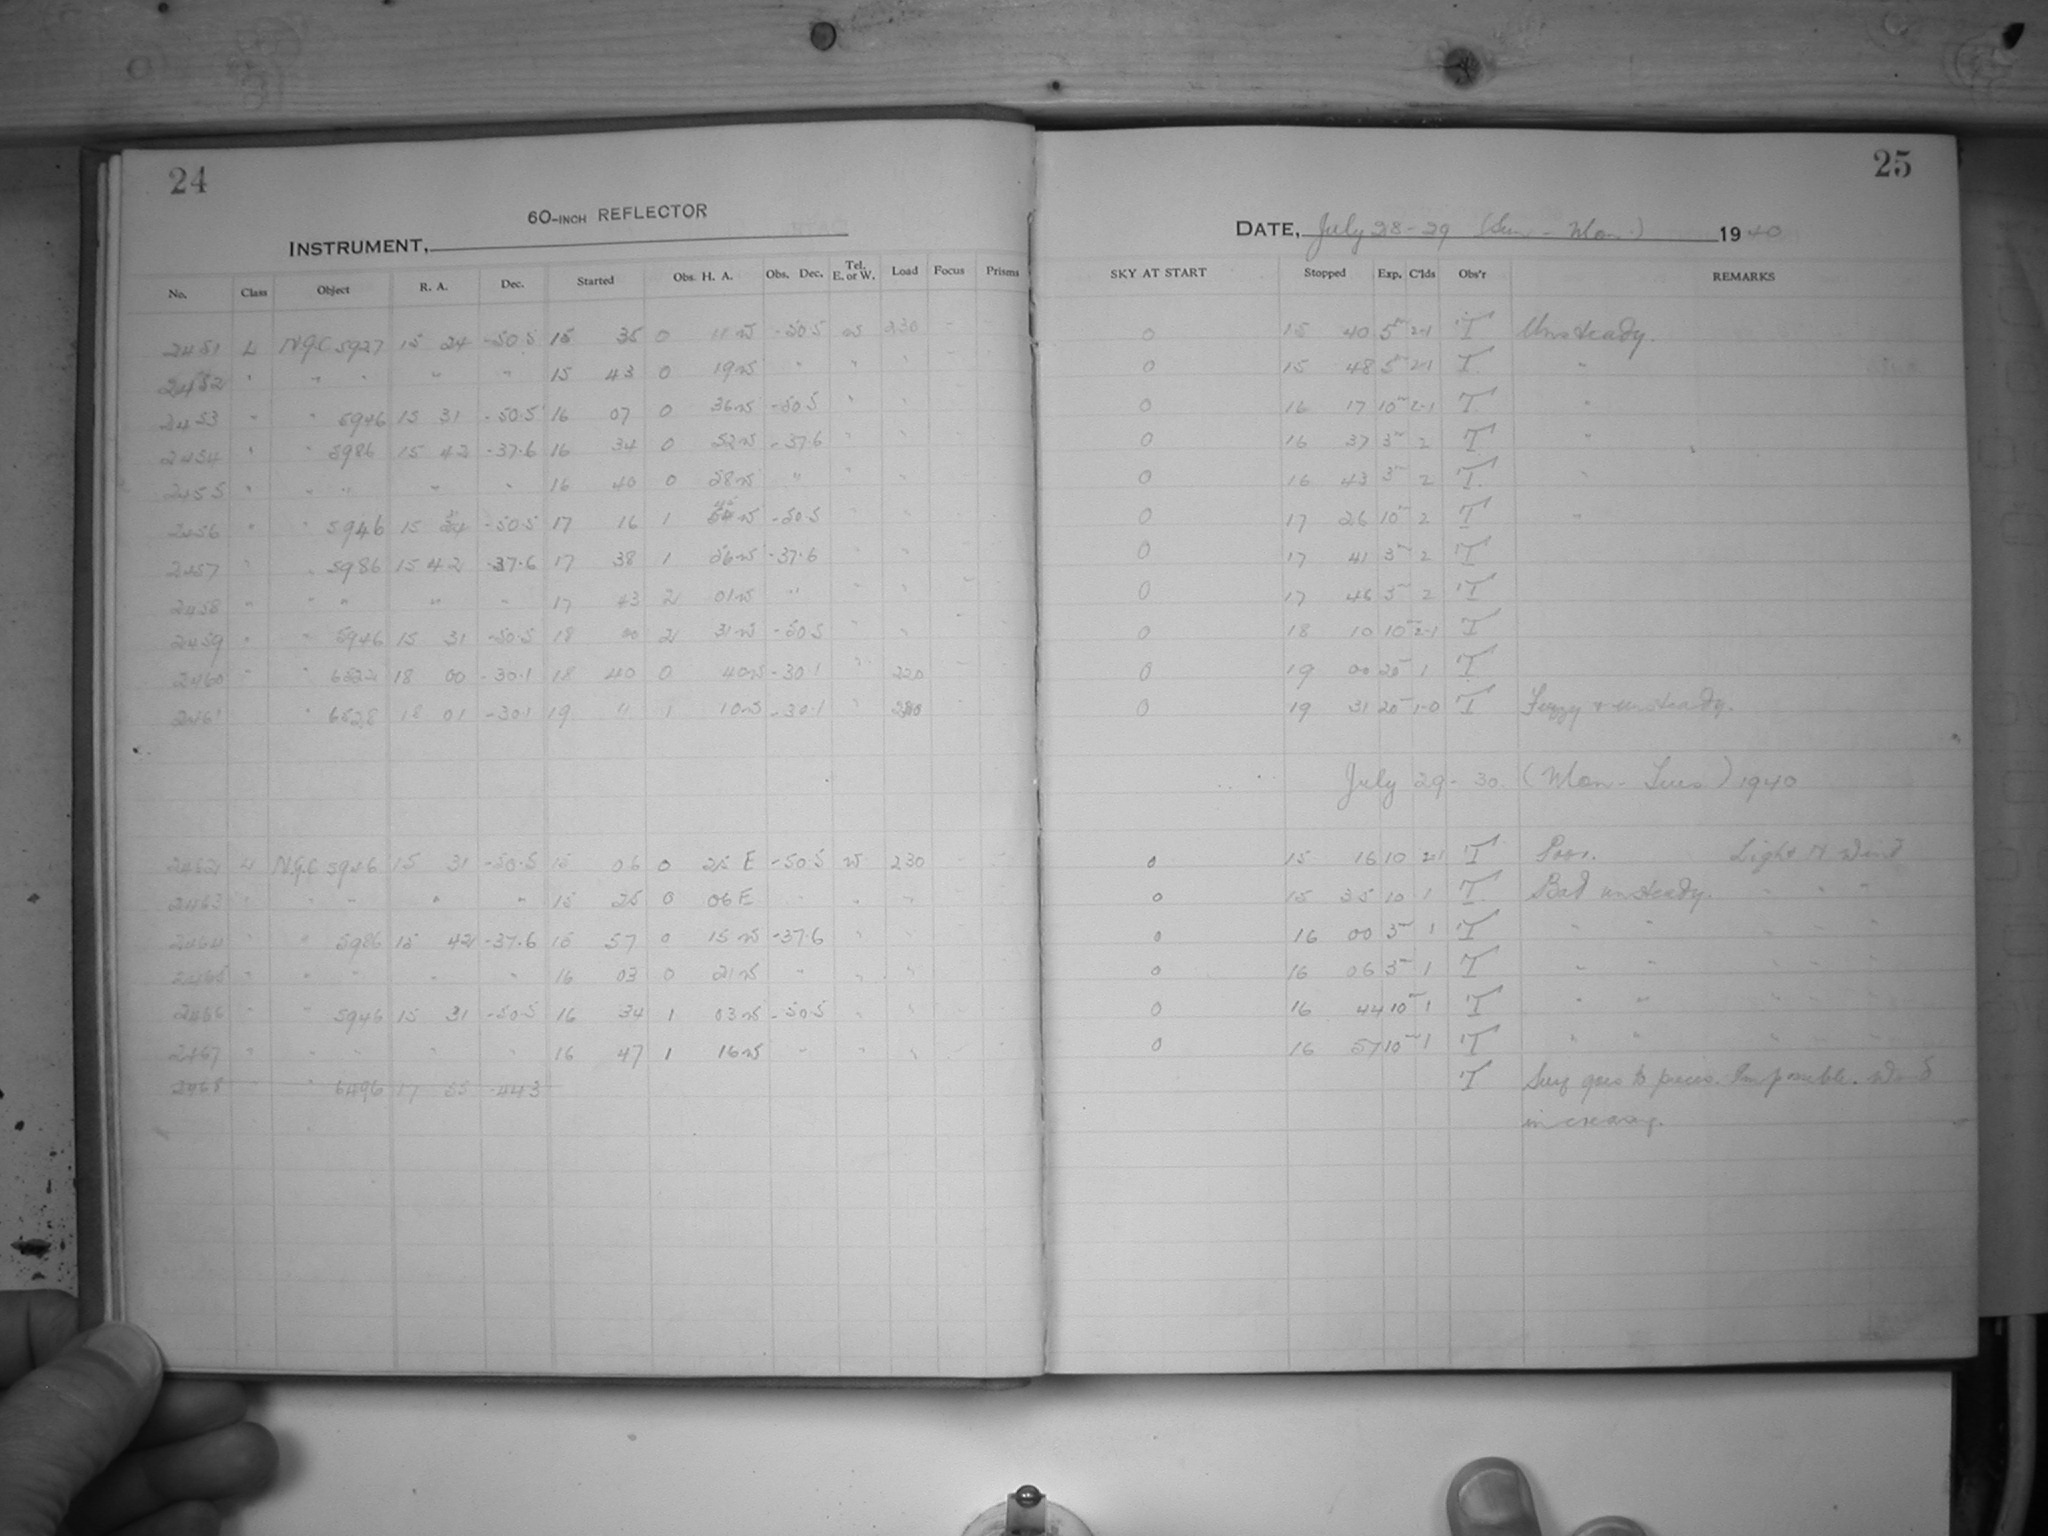 24
60-INCH REFLECTOR
INSTRUMENT,
No. Class Object R. A. Dec. Started Obs. H. A. Obs. Dec. Tel. E. or W. Load Focus Prisms
2451 L NGC 5927 15 24 -50.5 15 35 0 11 W -50.5 W 230
2452 " " " " " 15 43 0 19 W " "
2453 " " 5946 15 31 -50.5 16 07 0 36 W -50.5 " "
2454 " " 5986 15 42 -37.6 16 34 0 52 W -37.6 " "
2455 " " " " " 16 40 0 58 W " " "
2456 " " 5946 15 -50.5 17 16 1 W -50.5 " "
2457 " " 5986 15 42 -37.6 17 38 1 56 W -37.6 " "
2458 " " " " " 17 43 2 01 W " " "
2459 " " 5946 15 31 -50.5 18 00 2 31 W -50.5 " "
2460 " " 6522 18 00 -30.1 18 40 0 40 W -30.1 " 220
2461 " 6528 18 01 -30.1 19 11 1 10 W -30.1 "
2462 L NGC 5946 15 31 -50.5 15 06 0 25 E -50.5 W 230
2463 " " " " " 15 25 0 06 E " " "
2464 " " 5986 15 42 -37.6 15 57 0 15 W -37.6 " "
2465 " " " " " 16 03 0 21 W " " "
2466 " " 5946 15 31 -50.5 16 34 1 03 W -50.5 " "
2467 " " " " " 16 47 1 16 W " " "
2468 " " 6496 17 55 -44.3
25
DATE, July 28-29 (Sun - Mon.) 1940
SKY AT START Stopped Exp. C'lds Obs'r REMARKS
0 15 40 5m 2-1 T Unsteady.
0 15 48 5m 2-1 T "
0 16 17 10m 2-1 T "
0 16 37 3m 2 T "
0 16 43 3m 2 T "
0 17 26 10m 2 T "
0 17 41 3m 2 T
0 17 46 3m 2 T
0 18 10 10m 2-1 T
0 19 00 20m 1 T
0 19 31 20m 1-0 T Fuzzy & unsteady.
July 29-30. (Mon - Tues) 1940
0 15 16 10 2-1 T Poor. Light N Wind
0 15 35 10 1 T Bad unsteady. " " "
0 16 00 3m 1 T " " " " "
0 16 06 3m 1 T " " " " "
0 16 44 10m 1 T " " " " "
0 16 57 10m 1 T " " " " "
T goes to pieces. Impossible. Wind
increasing.